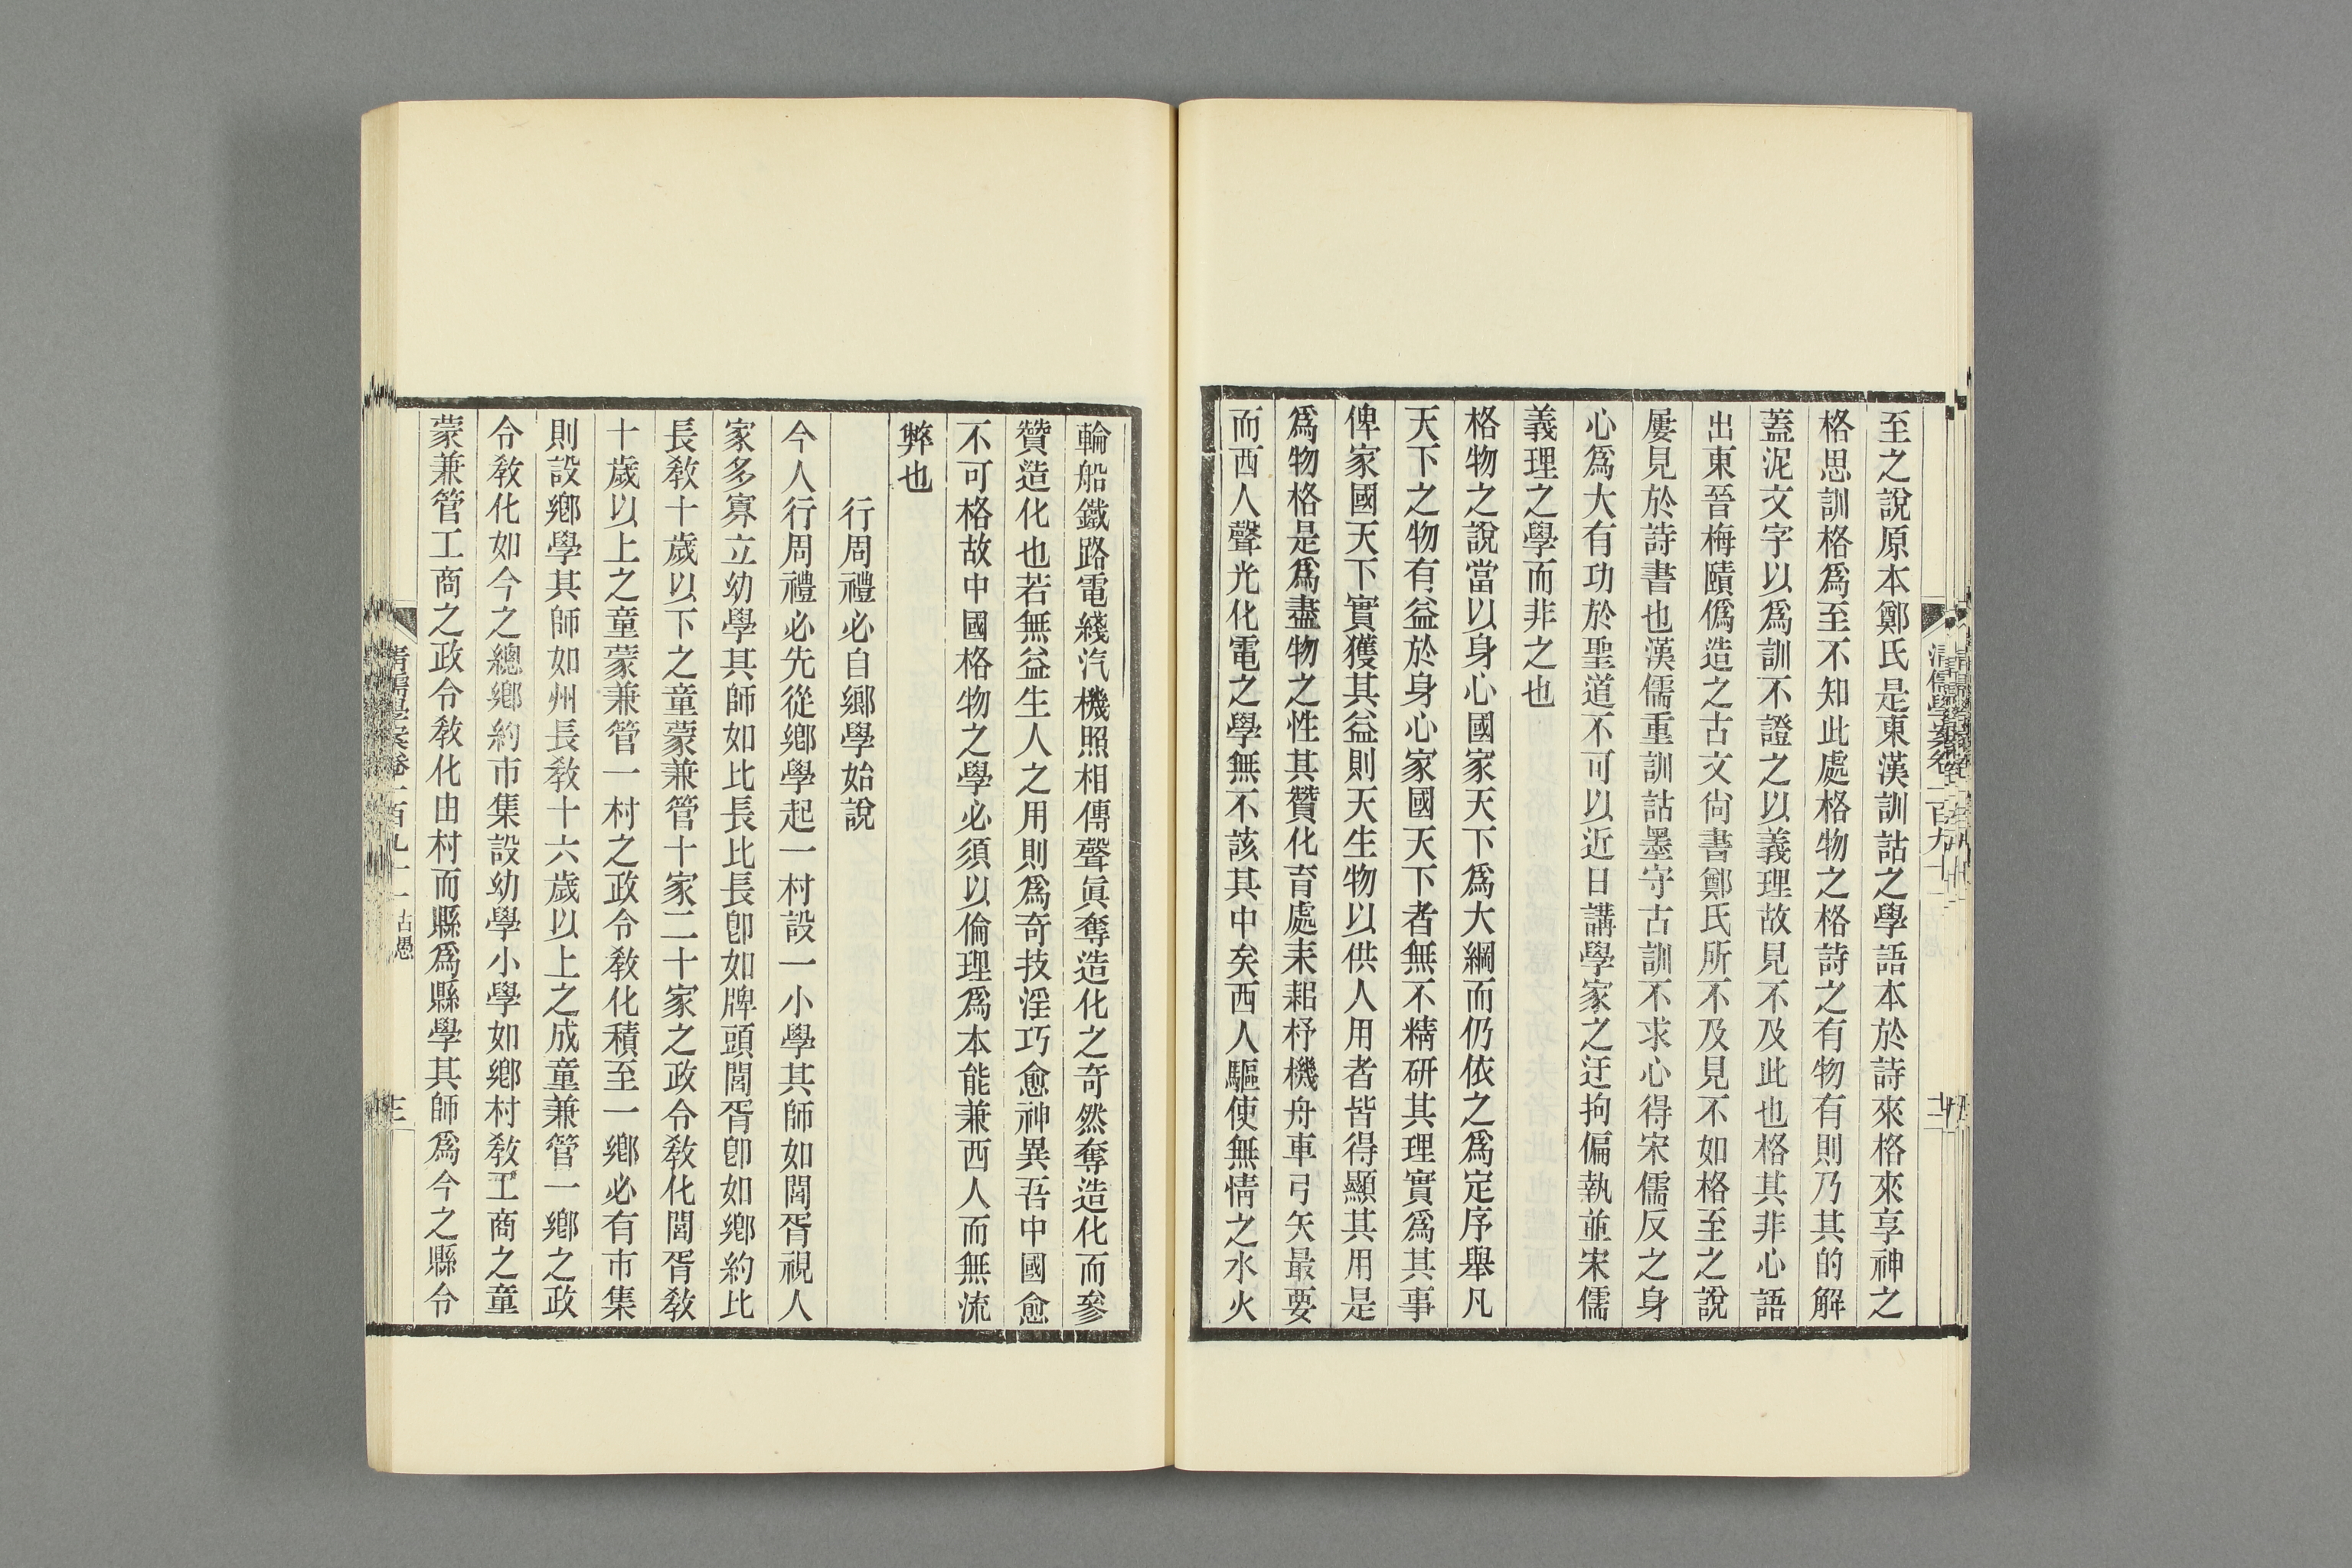 至之說原本鄭氏是東漢訓詁之學語本於詩來格來享神之
格思訓格爲至不知此處格物之格詩之有物有則乃其的解
蓋泥文字以爲訓不證之以義理故見不及此也格其非心語
出東晉梅賾僞造之古文尙書鄭氏所不及見不如格至之說
屢見於詩書也漢儒重訓詁墨守古訓不求心得宋儒反之身
心爲大有功於聖道不可以近日講學家之迂拘偏執並宋儒
義理之學而非之也
格物之說當以身心國家天下爲大綱而仍依之爲定序舉凡
天下之物有益於身心家國天下者無不精硏其理實爲其事
俾家國天下實獲其益則天生物以供人用者皆得顯其用是
爲物格是爲盡物之性其贊化育處耒耜杼機舟車弓矢最要
而西人聲光化電之學無不該其中矣西人驅使無情之水火
輪船鐵路電綫汽機照相傳聲眞奪造化之奇然奪造化而參
贊造化也若無益生人之用則爲奇技淫巧愈神異吾中國愈
不可格故中國格物之學必須以倫理爲本能兼西人而無流
弊也
行周禮必自鄉學始說
今人行周禮必先從鄉學起一村設一小學其師如閭胥視人
家多寡立幼學其師如比長比長卽如牌頭閭胥卽如鄉約比
長敎十歲以下之童蒙兼管十家二十家之政令敎化閭胥敎
十歲以上之童蒙兼管一村之政令敎化積至一鄉必有市集
則設鄉學其師如州長敎十六歲以上之成童兼管一鄉之政
令敎化如今之總鄉約市集設幼學小學如鄉村敎工商之童
蒙兼管工商之政令敎化由村而縣爲縣學其師爲今之縣令